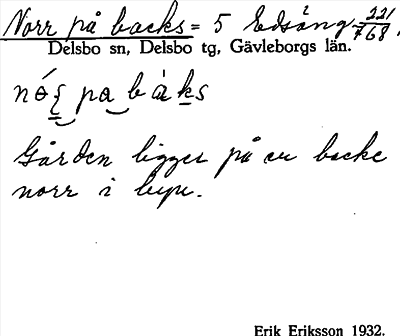 Norr på backs = 5 Edsäng 221/768.
Delsbo sn, Delsbo tg, Gävleborgs län.
pa bàks
Gården ligger på en backe
norr i byn.
Erik Eriksson 1932.